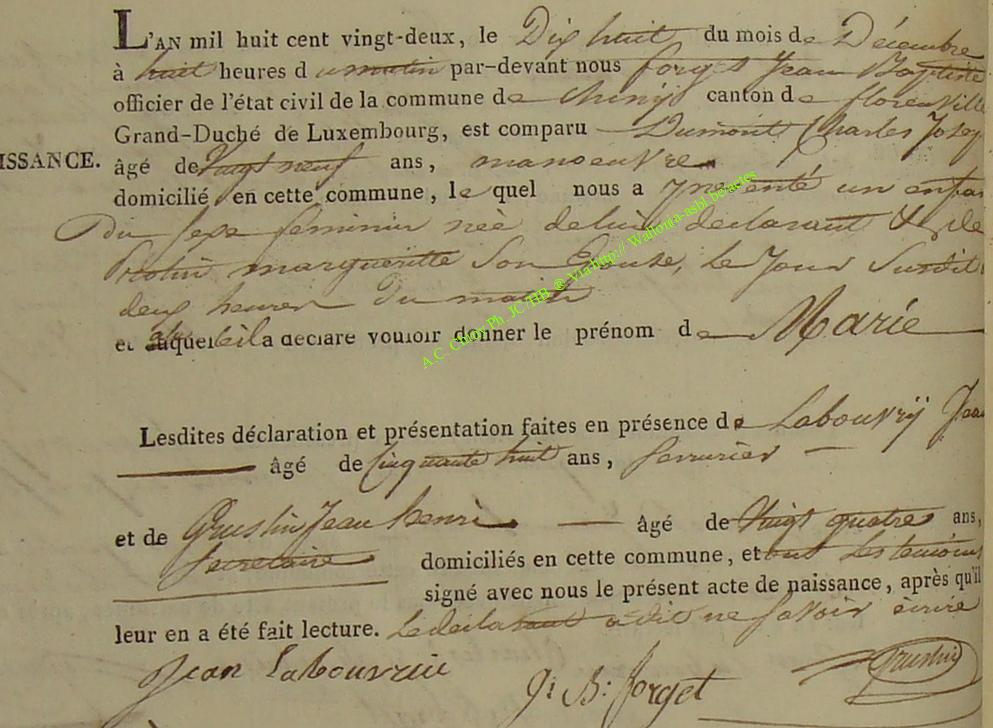 L'AN mil huit cent vingt-deux, le Dix huit du mois de Décembre
à huit heures du matin par-devant nous forget Jean Baptiste
officier de l'état civil de la commune de Chiny canton de florenville
Grand-Duché de Luxembourg, est comparu Dumont Charles Josep
ISSANCE. âgé de Vingt neuf ans, manoeuvre
domicilié en cette commune, le quel nous a presenté un enfa
Du sexe feminin née de lui declarant & de
margueritte Son Epouse, le Jour Susdit
deux heures Du matin
et auquel il a déclaré vouloir donner le prénom de Marie
Lesdites déclaration et présentation faites en présence de Labouvrÿ Jea
âgé de Cinquante huit ans, serrurier
et de Gruslin Jean henri âgé de Vingt quatre ans,
Secretaire domiciliés en cette commune, et ont les temoins
signé avec nous le présent acte de naissance, après qu'il
leur en a été fait lecture. Le declarant a dit ne savoir écrire
Jean Labouvrie J: B: forget Gruslin
A.C. Chiny Ph. JC/HB @ Via http:// Wallonia-asbl.be-actes